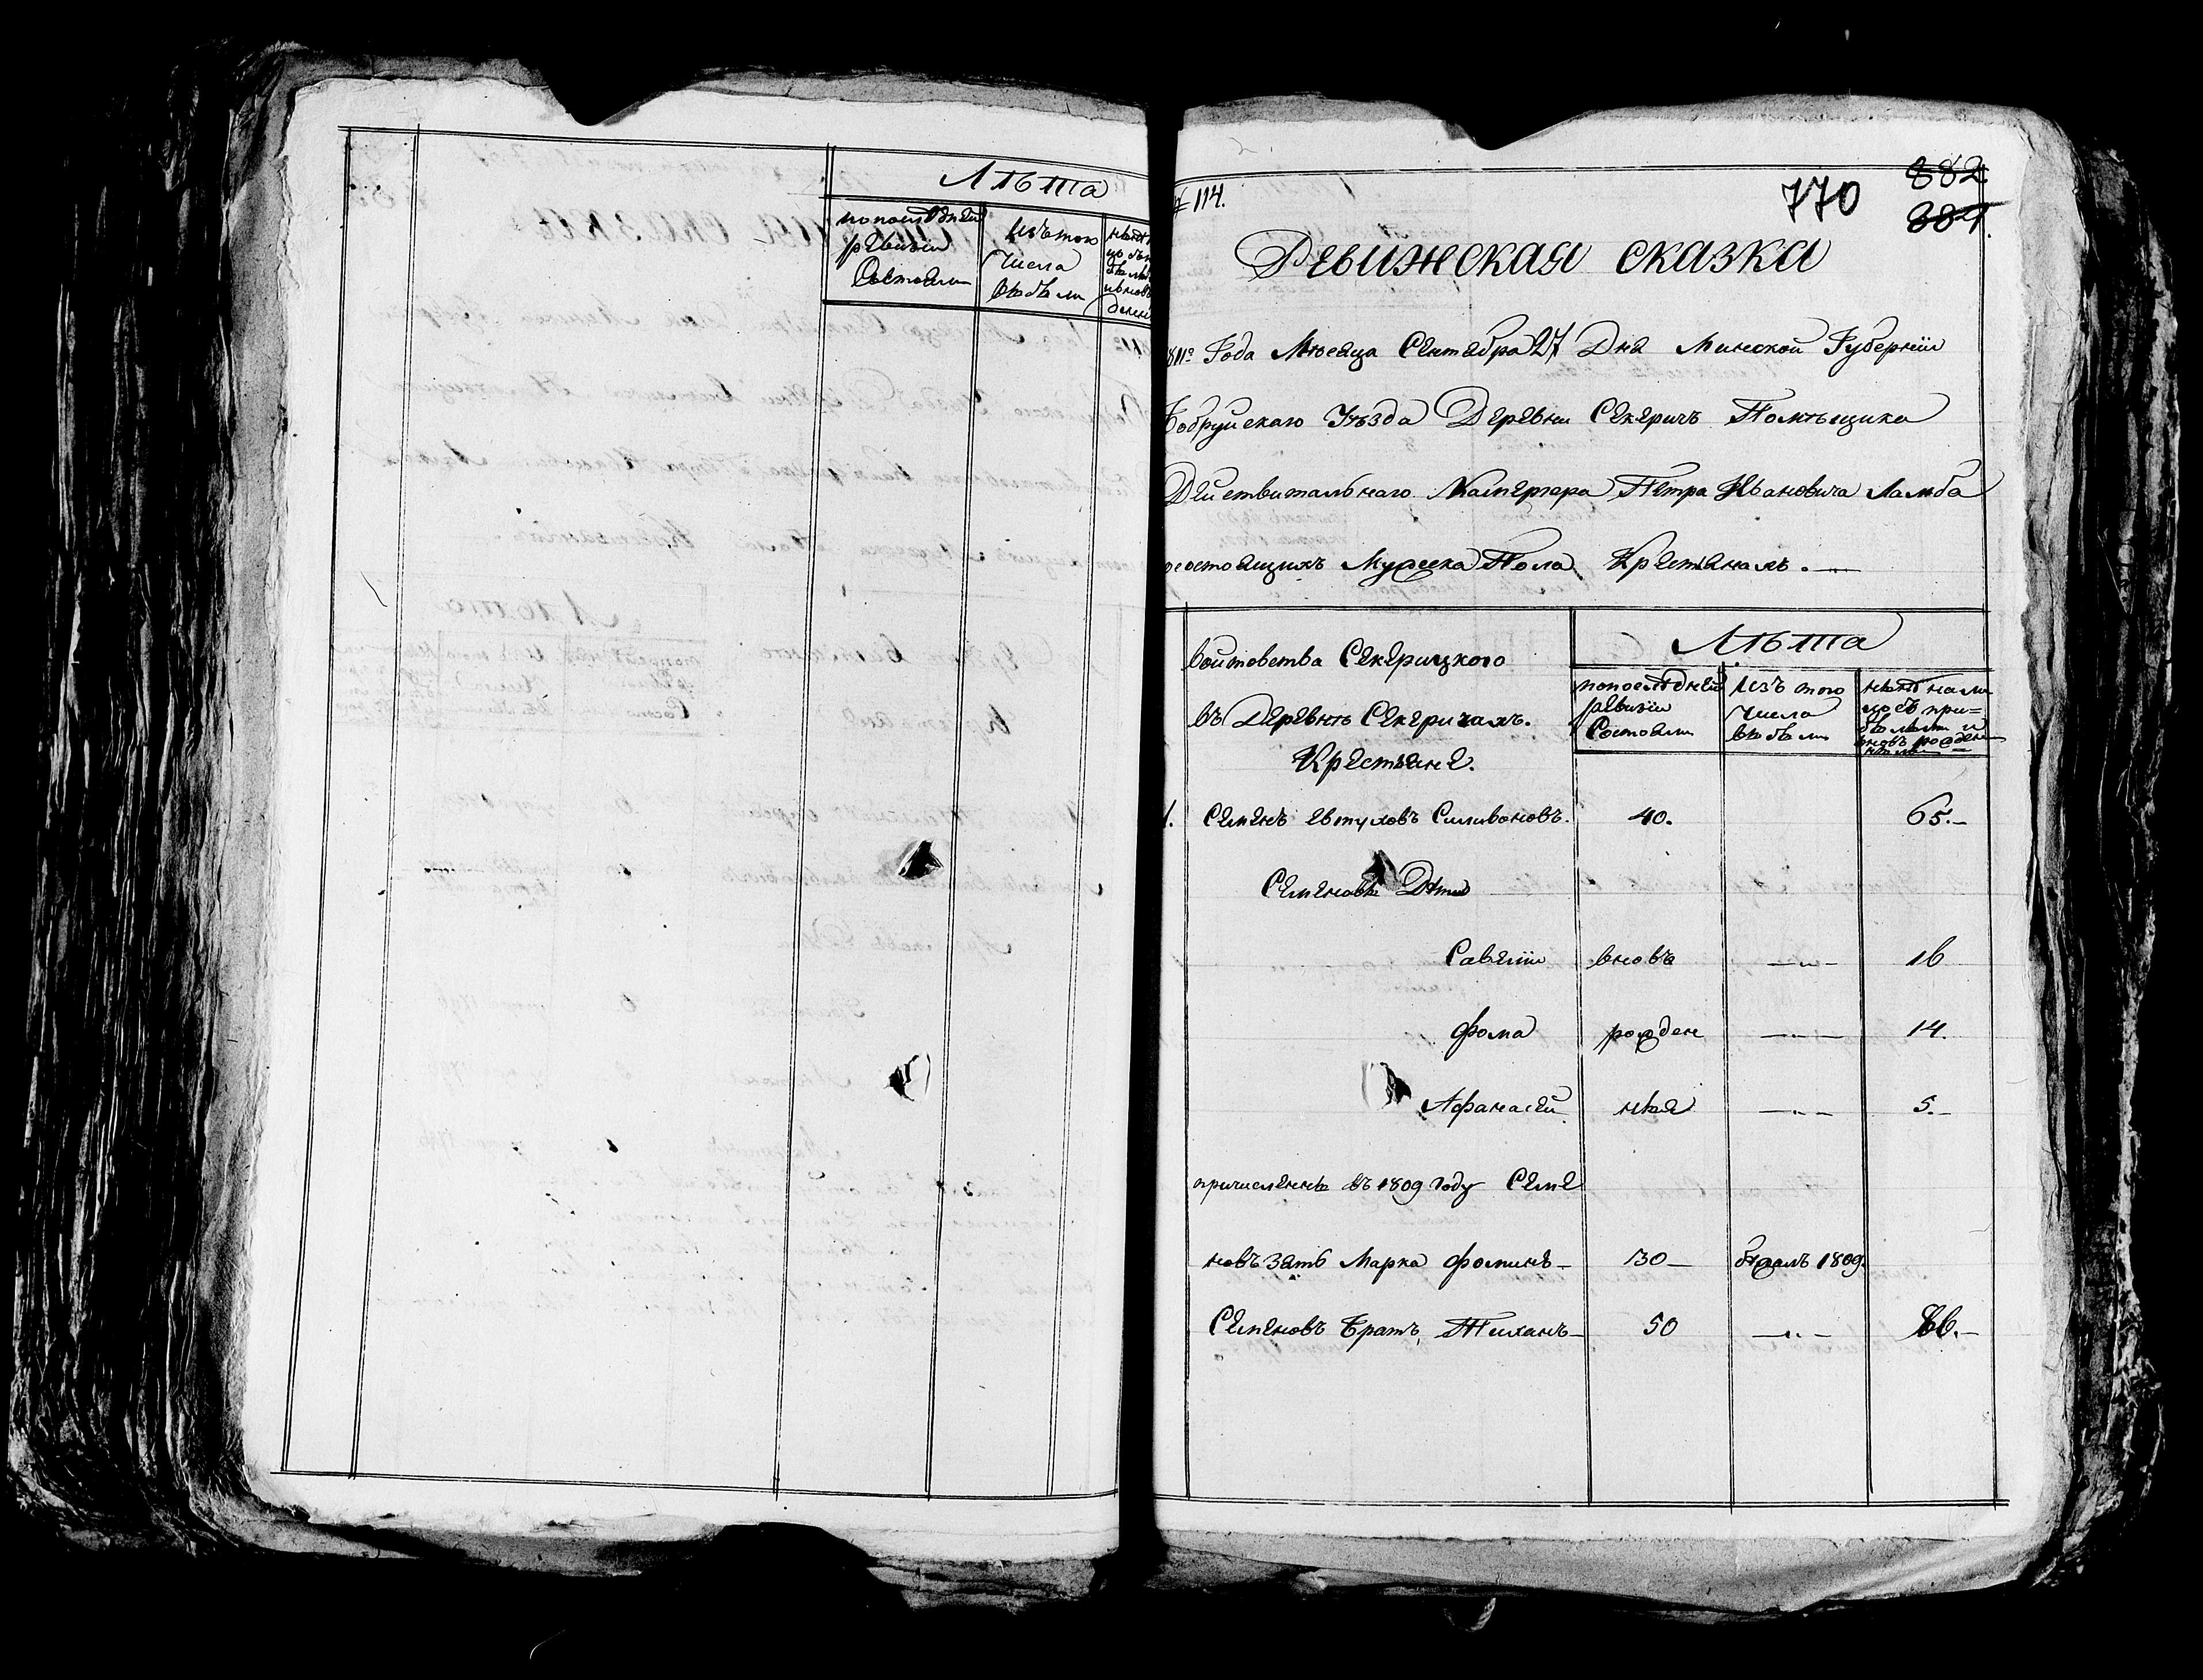 Лѣта
попослѣдней
ревизіи
Состояли
изъ того
Числа
выбыли
№ 114.
770
882
884.
Ревижская сказка
811го Года Мѣсяца Сентября 27 Дня Минской Губерніи
Бобруйскаго Уѣзда Деревни Секеричъ Помѣщика
Действительнаго Камергера Петра Ивановича Ламба
осостоящихъ Мужеска Пола Крестьянахъ.
Войтовства Секерицкого
въ Деревнѣ Секеричахъ.
Крестьяне.
Лѣта
попослѣдней
ревизіи
Состояли
изъ того
Числа
выбыли
нынѣ налицо съ при-
былыми и
вновь рожден
ными
1. Семенъ Евтуховъ Силивоновъ. 40. 65.
Семеновы Дѣти
Савелiи вновь 16
Фома рожден 14.
Афанасей ные 5.
причисленны въ 1809 году Семе
новъ зять Марка Фоминъ 30 бѣжалъ 1809.
Семеновъ Братъ, Тиханъ 50 66.